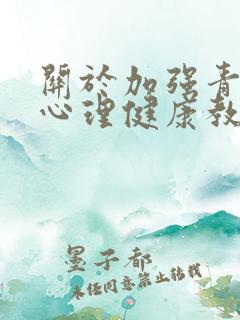 關於加强青
心理健康教
墨子都
未任同意禁止轉載